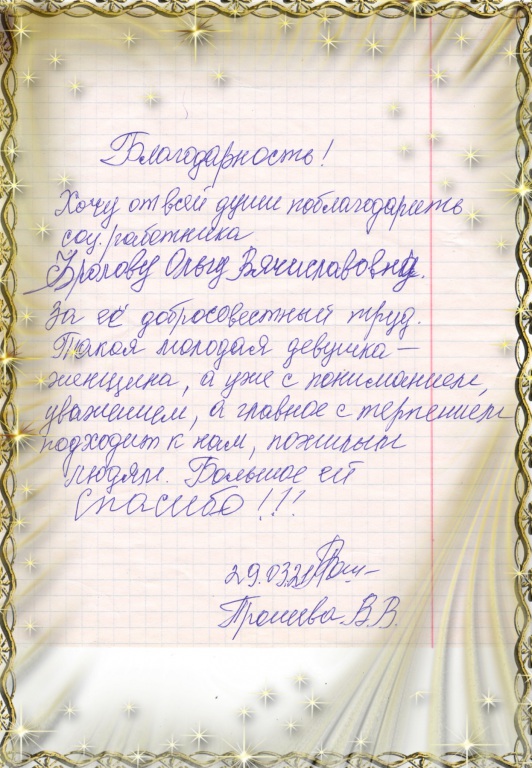 Благодарность!
Хочу от всей души поблагодарить
соц. работника
Фролову Ольгу Вячиславовну.
За её добросовестный труд.
Такая молодая девушка —
женщина, а уже с пониманием,
уважением, а главное с терпением
подходит к нам, пожилым
людям. Большое ей
Спасибо!!!
29.03.21
В.В.